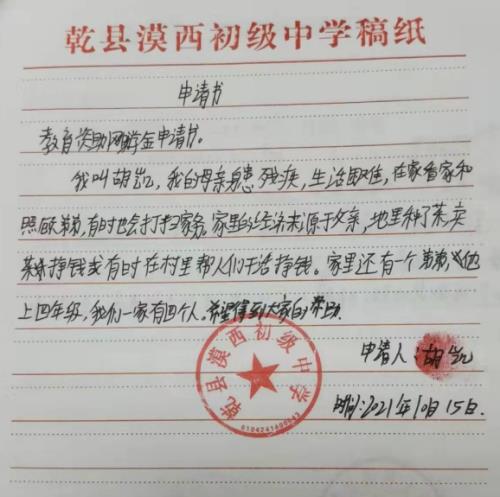 乾县漠西初级中学稿纸
申请书
教育资助网助学金申请书。
我叫胡凯，我的母亲身患残疾，生活困难，在家看家和
照顾弟弟，有时也会打扫家务，家里的经济来源于父亲，地里种了菜，卖
菜挣钱或有时在村里帮人们干活挣钱。家里还有一个弟弟，他
上四年级，我们一家有四个人。希望得到大家的帮助
申请人：胡凯
时间：2021年10月15日.
乾县漠西初级中学